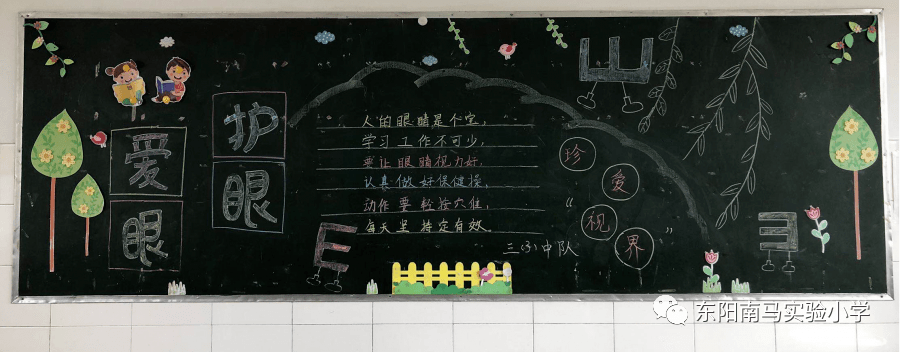 爱眼
护眼
人的眼睛是个宝，
学习工作不可少，
要让眼睛视力好，
认真做好保健操，
动作要轻按穴准，
每天坚持定有效。
三(3)中队
“珍爱视界”
E
E
E
东阳南马实验小学